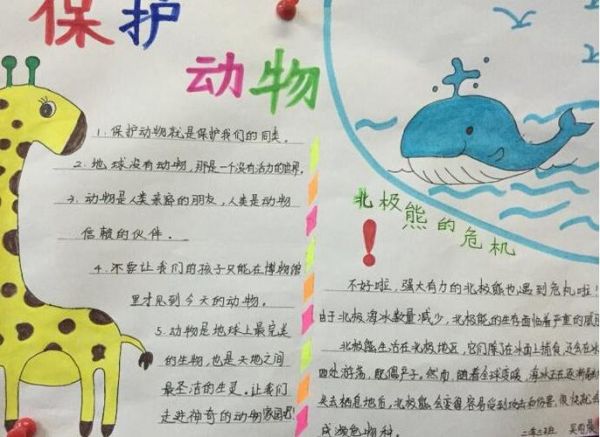 保护
动物
1. 保护动物就是保护我们的同类。
2. 地球没有动物，那是一个没有活力的世界。
3. 动物是人类亲密的朋友，人类是动物
信赖的伙伴。
4. 不要让我们的孩子只能在博物馆
里才见到今天的动物。
5. 动物是地球上最完美
的生物，也是天地之间
最圣洁的生灵。让我们
走进神奇的动物家园吧!
北极熊的危机
!
不好啦，强大有力的北极熊也遇到危机啦!
由于北极海冰数量减少，北极熊的生存面临着严重的威
北极熊生活在北极地区，它们除了在冰面上捕食，还会在冰
四处游荡，
然而，随着全球变暖，海冰正在逐渐
失去栖息地后，北极熊会变得容易受到攻击和伤害，很快就会
成濒危物种。
二年二班